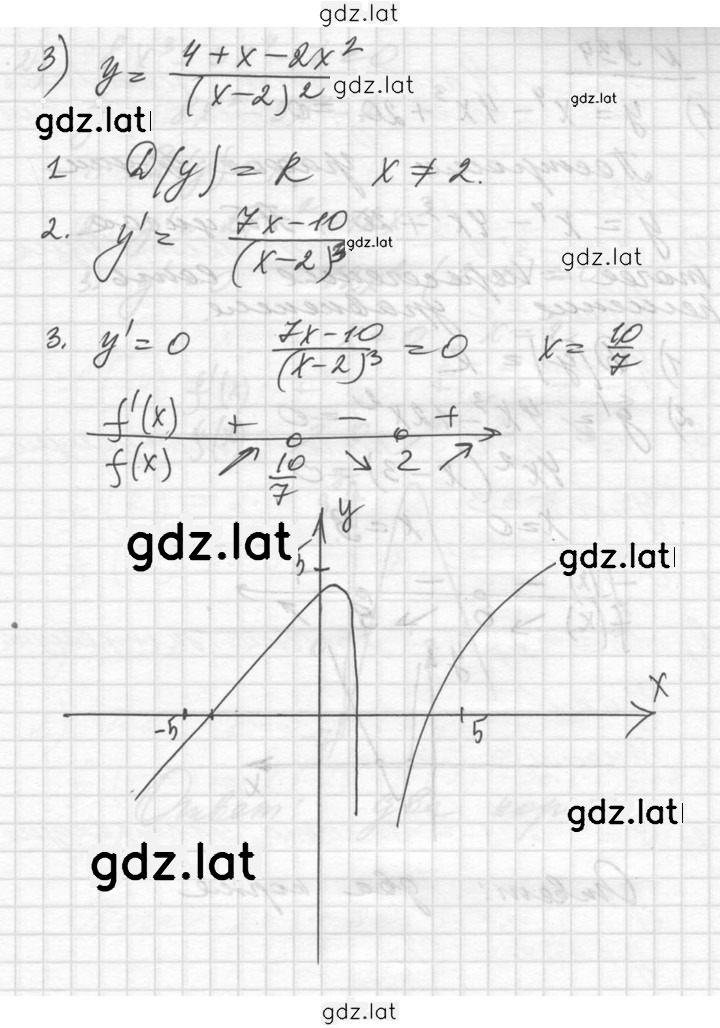 gdz.lat
3) y = (4 + x − 2x²)/(x−2)² gdz.lat gdz.lat
gdz.lat
1 D(y) = R x ≠ 2.
2. y' = (7x−10)/(x−2)³ gdz.lat gdz.lat
3. y' = 0 (7x−10)/(x−2)³ = 0 x = 10/7
f'(x) + − +
f(x) ↗ 10/7 ↘ 2 ↗
y
gdz.lat
5
gdz.lat
x
-5 5
gdz.lat
gdz.lat
gdz.lat